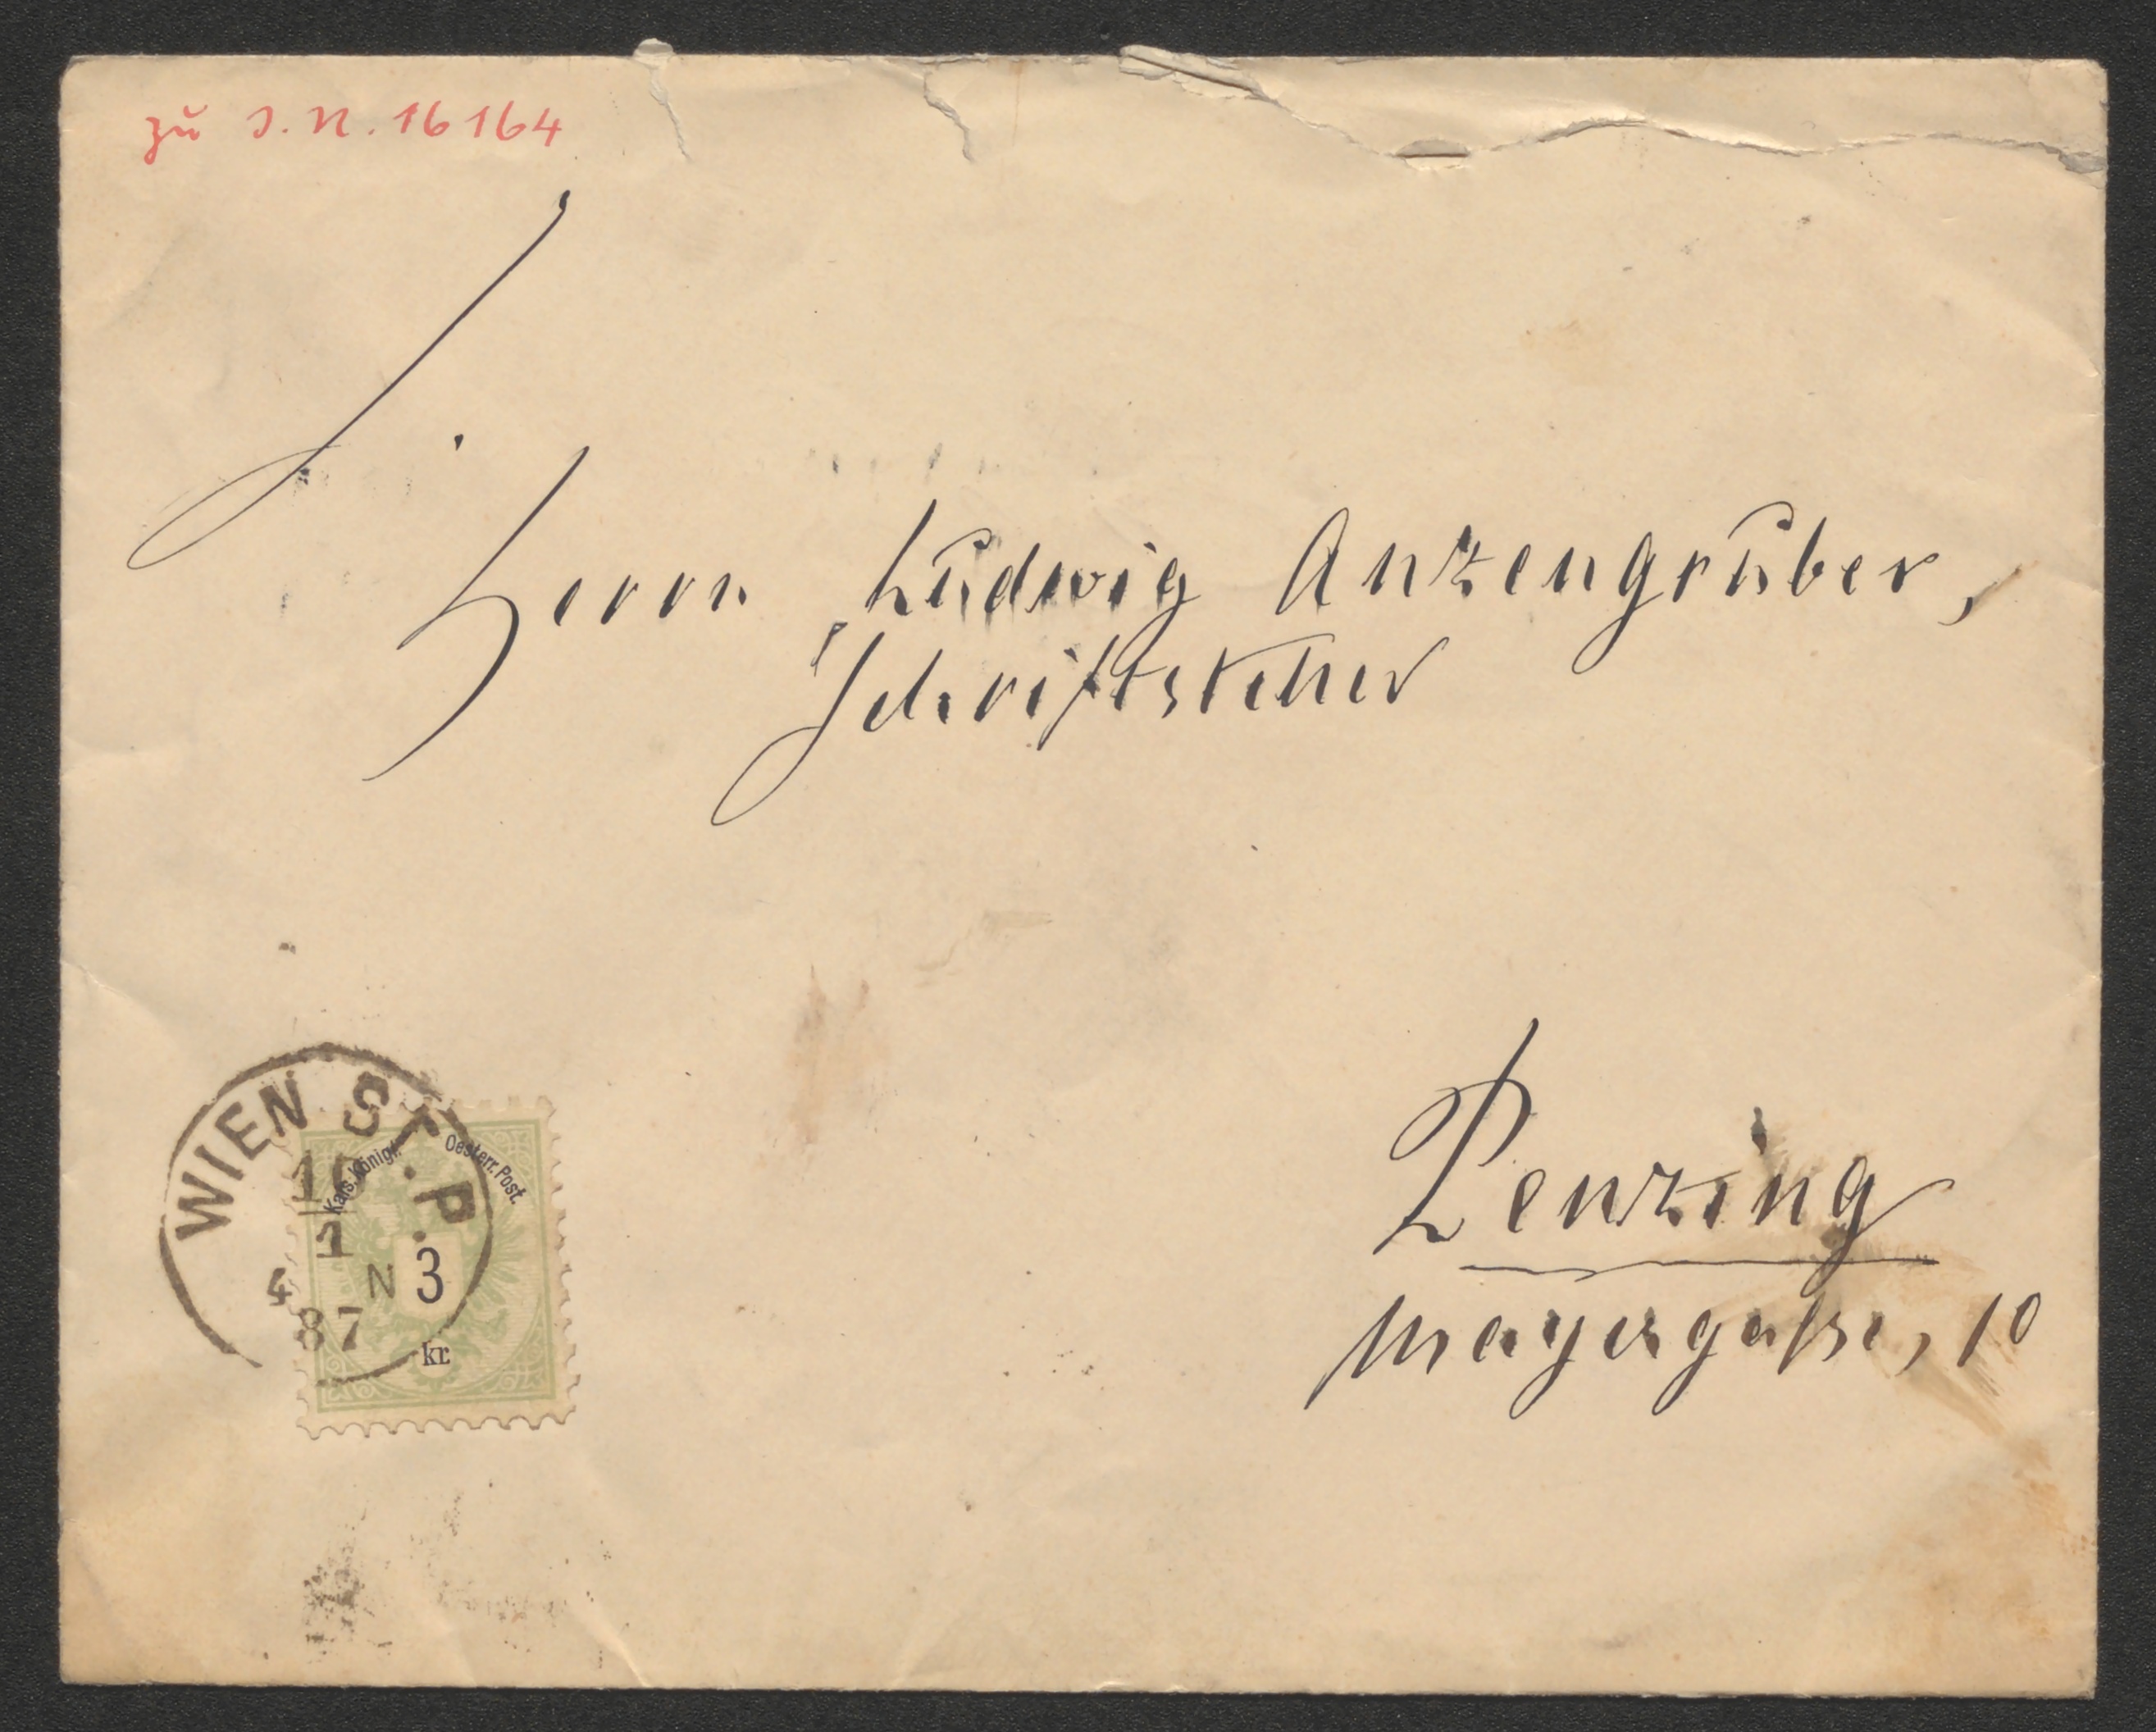 zu I.N. 16164
Herrn Ludwig Anzengruber,
Schriftsteller
WIEN ST. P.
1
4 N
87
Kais. Königl. Oesterr. Post.
3
kr.
Penzing
Mayergasse, 10